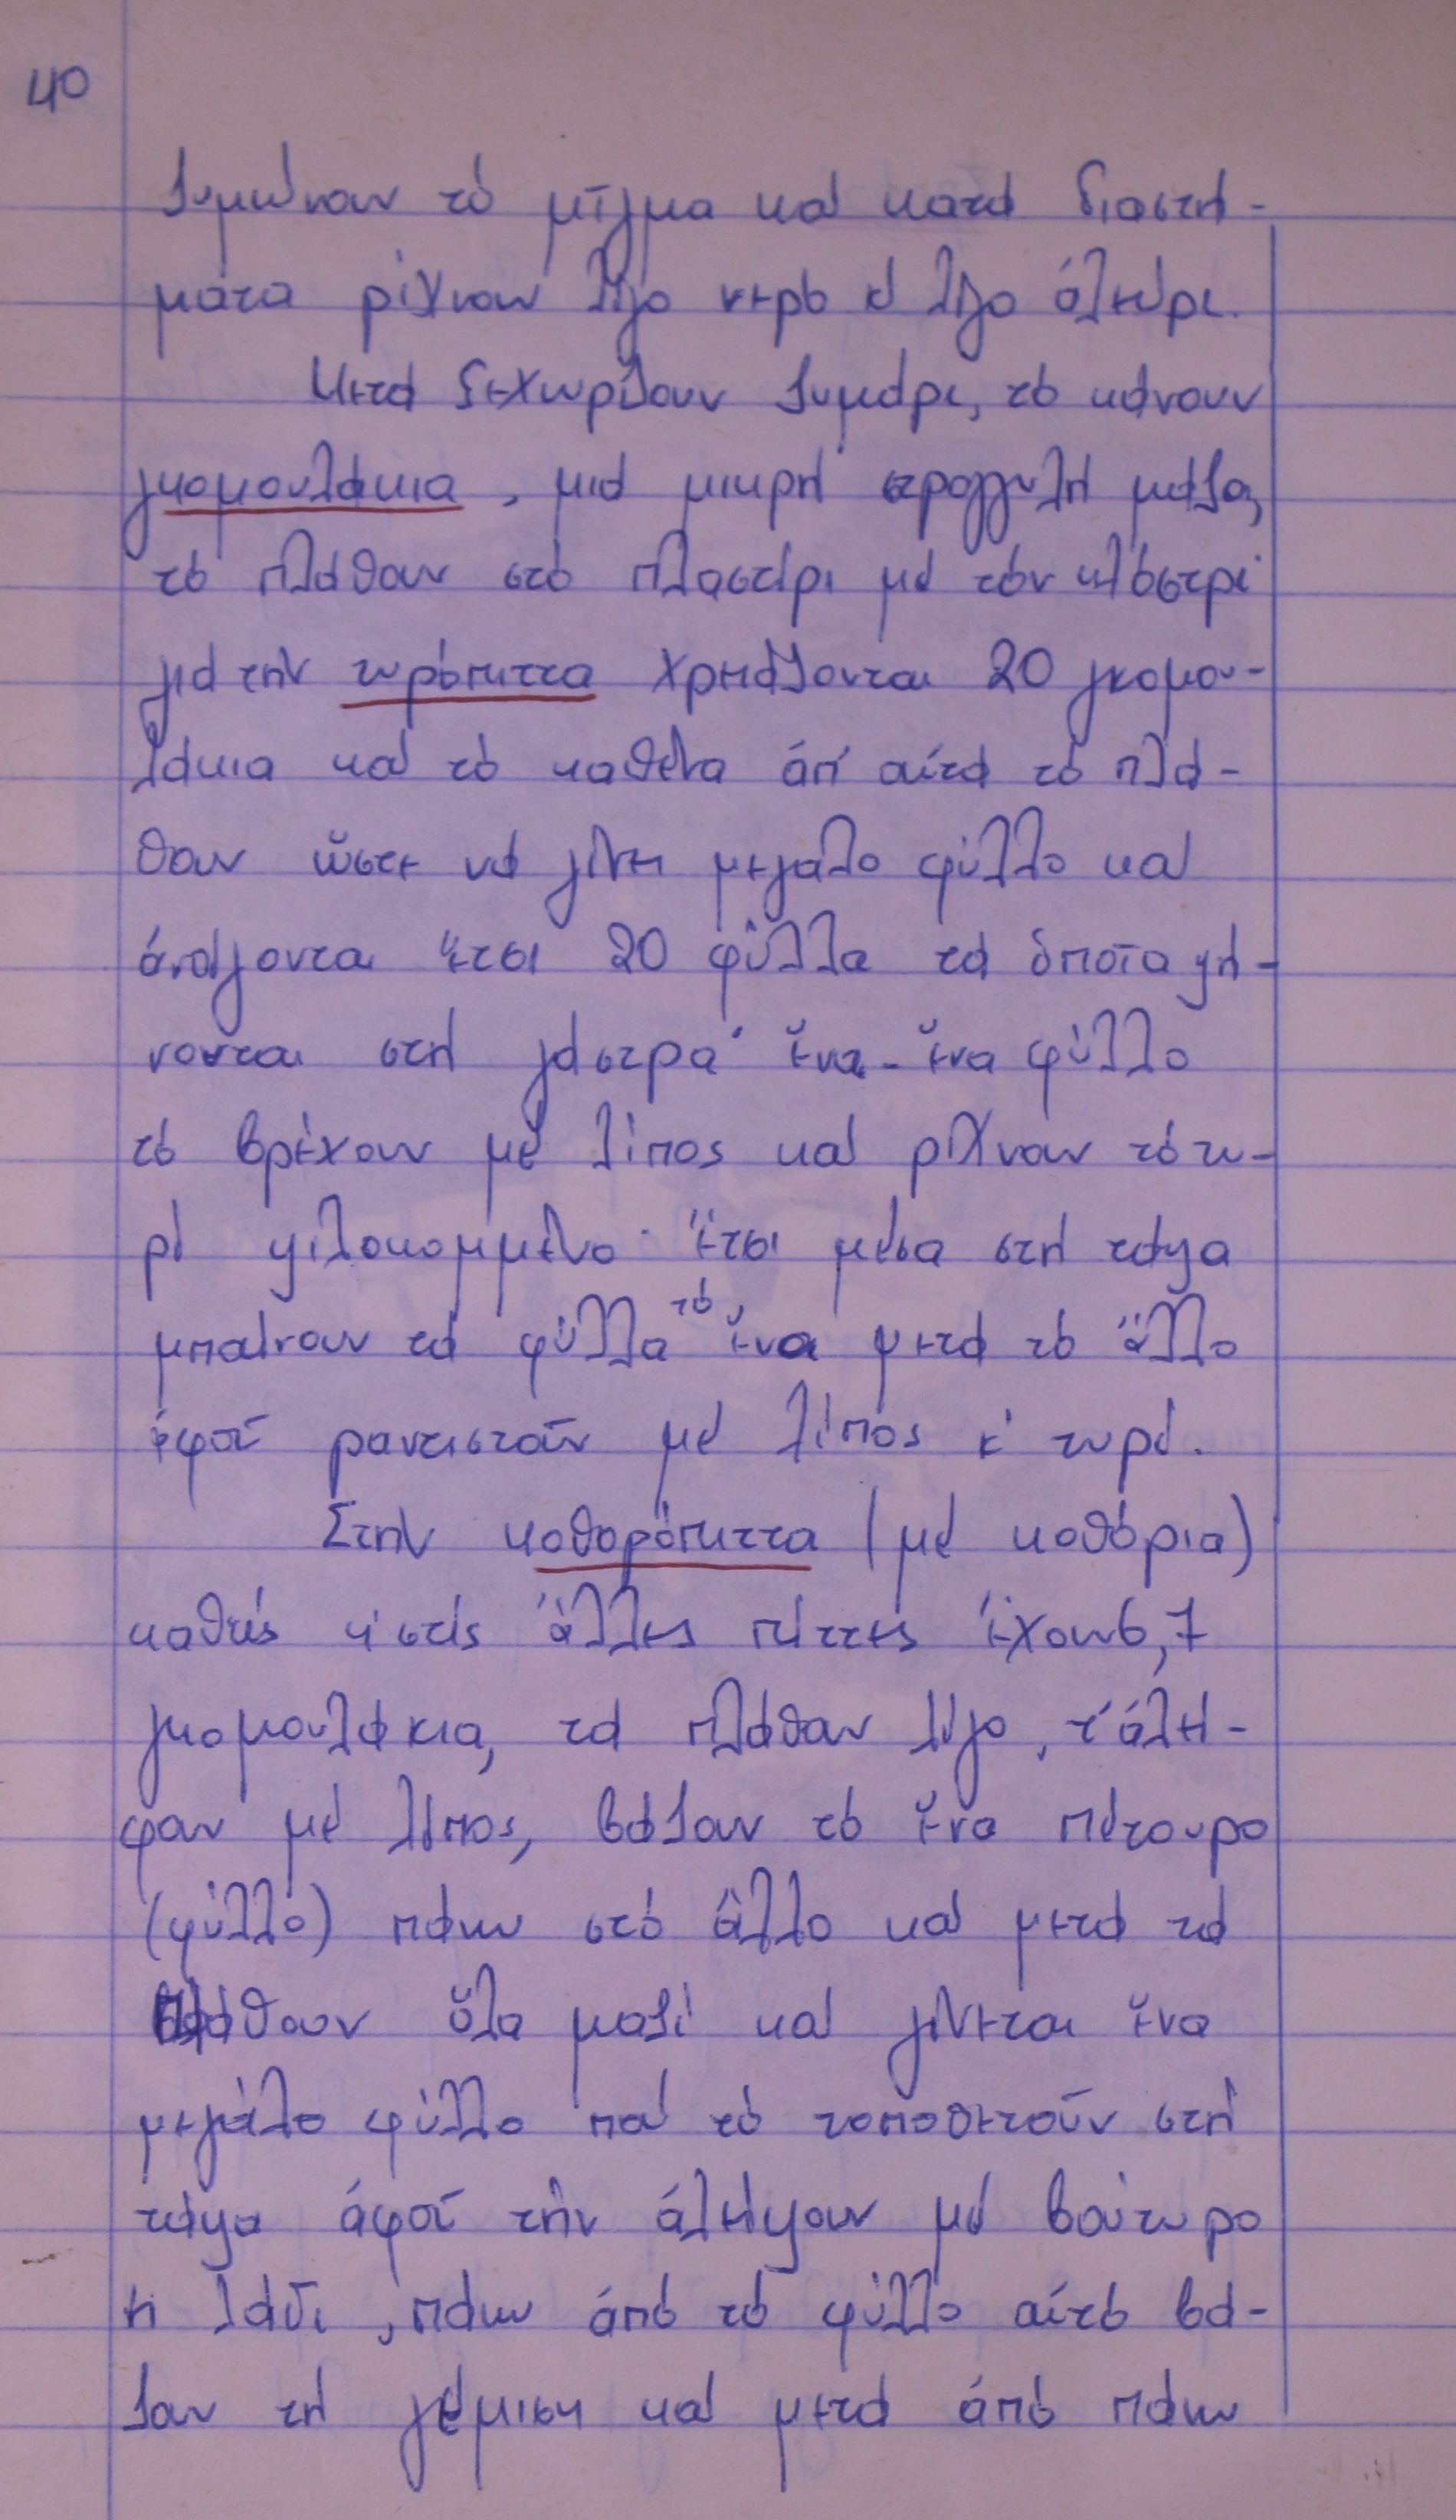 40
ζυμώνουν τό μῖγμα καί κατά διαστή-
ματα ρίχνουν λίγο νερό κ' λίγο ἀλεύρι.
Μετά ξεχωρίζουν ζυμάρι, τό κάνουν
γκομουλάκια, μιά μικρή στρογγυλή μάζα,
τό πλάθουν στό πλαστίρι μέ τόν κλόστρι·
γιά τήν τυρόπιττα χρειάζονται 20 γκομου-
λάκια καί τό καθένα ἀπ' αὐτά τό πλά-
θουν ὥστε νά γίνει μεγάλο φύλλο καί
ἀνοίγονται ἔτσι 20 φύλλα τά ὁποῖα ψή-
νονται στή γάστρα· ἕνα-ἕνα φύλλο
τό βρέχουν μέ λίπος καί ρίχνουν τό τυ-
ρί ψιλοκομμένο· Ἔτσι μέσα στή τάψα
μπαίνουν τά φύλλα τό ἕνα μετά τό ἄλλο
ἀφοῦ ραντιστοῦν μέ λίπος κ' τυρί.
Στήν κοθορόπιττα (μέ κοθόρια)
καθώς κ' στίς ἄλλες πίττες ἔχουν 6,7
γκομουλάκια, τά πλάθουν λίγο, τ' ἀλεί-
φουν μέ λίπος, βάζουν τό ἕνα πέτουρο
(φύλλο) πάνω στό ἄλλο καί μετά τά
πλάθουν ὅλα μαζί καί γίνεται ἕνα
μεγάλο φύλλο πού τό τοποθετοῦν στή
τάψα ἀφοῦ τήν ἀλείψουν μέ βούτυρο
ἤ λάδι, πάνω ἀπό τό φύλλο αὐτό βά-
ζουν τή γέμιση καί μετά ἀπό πάνω